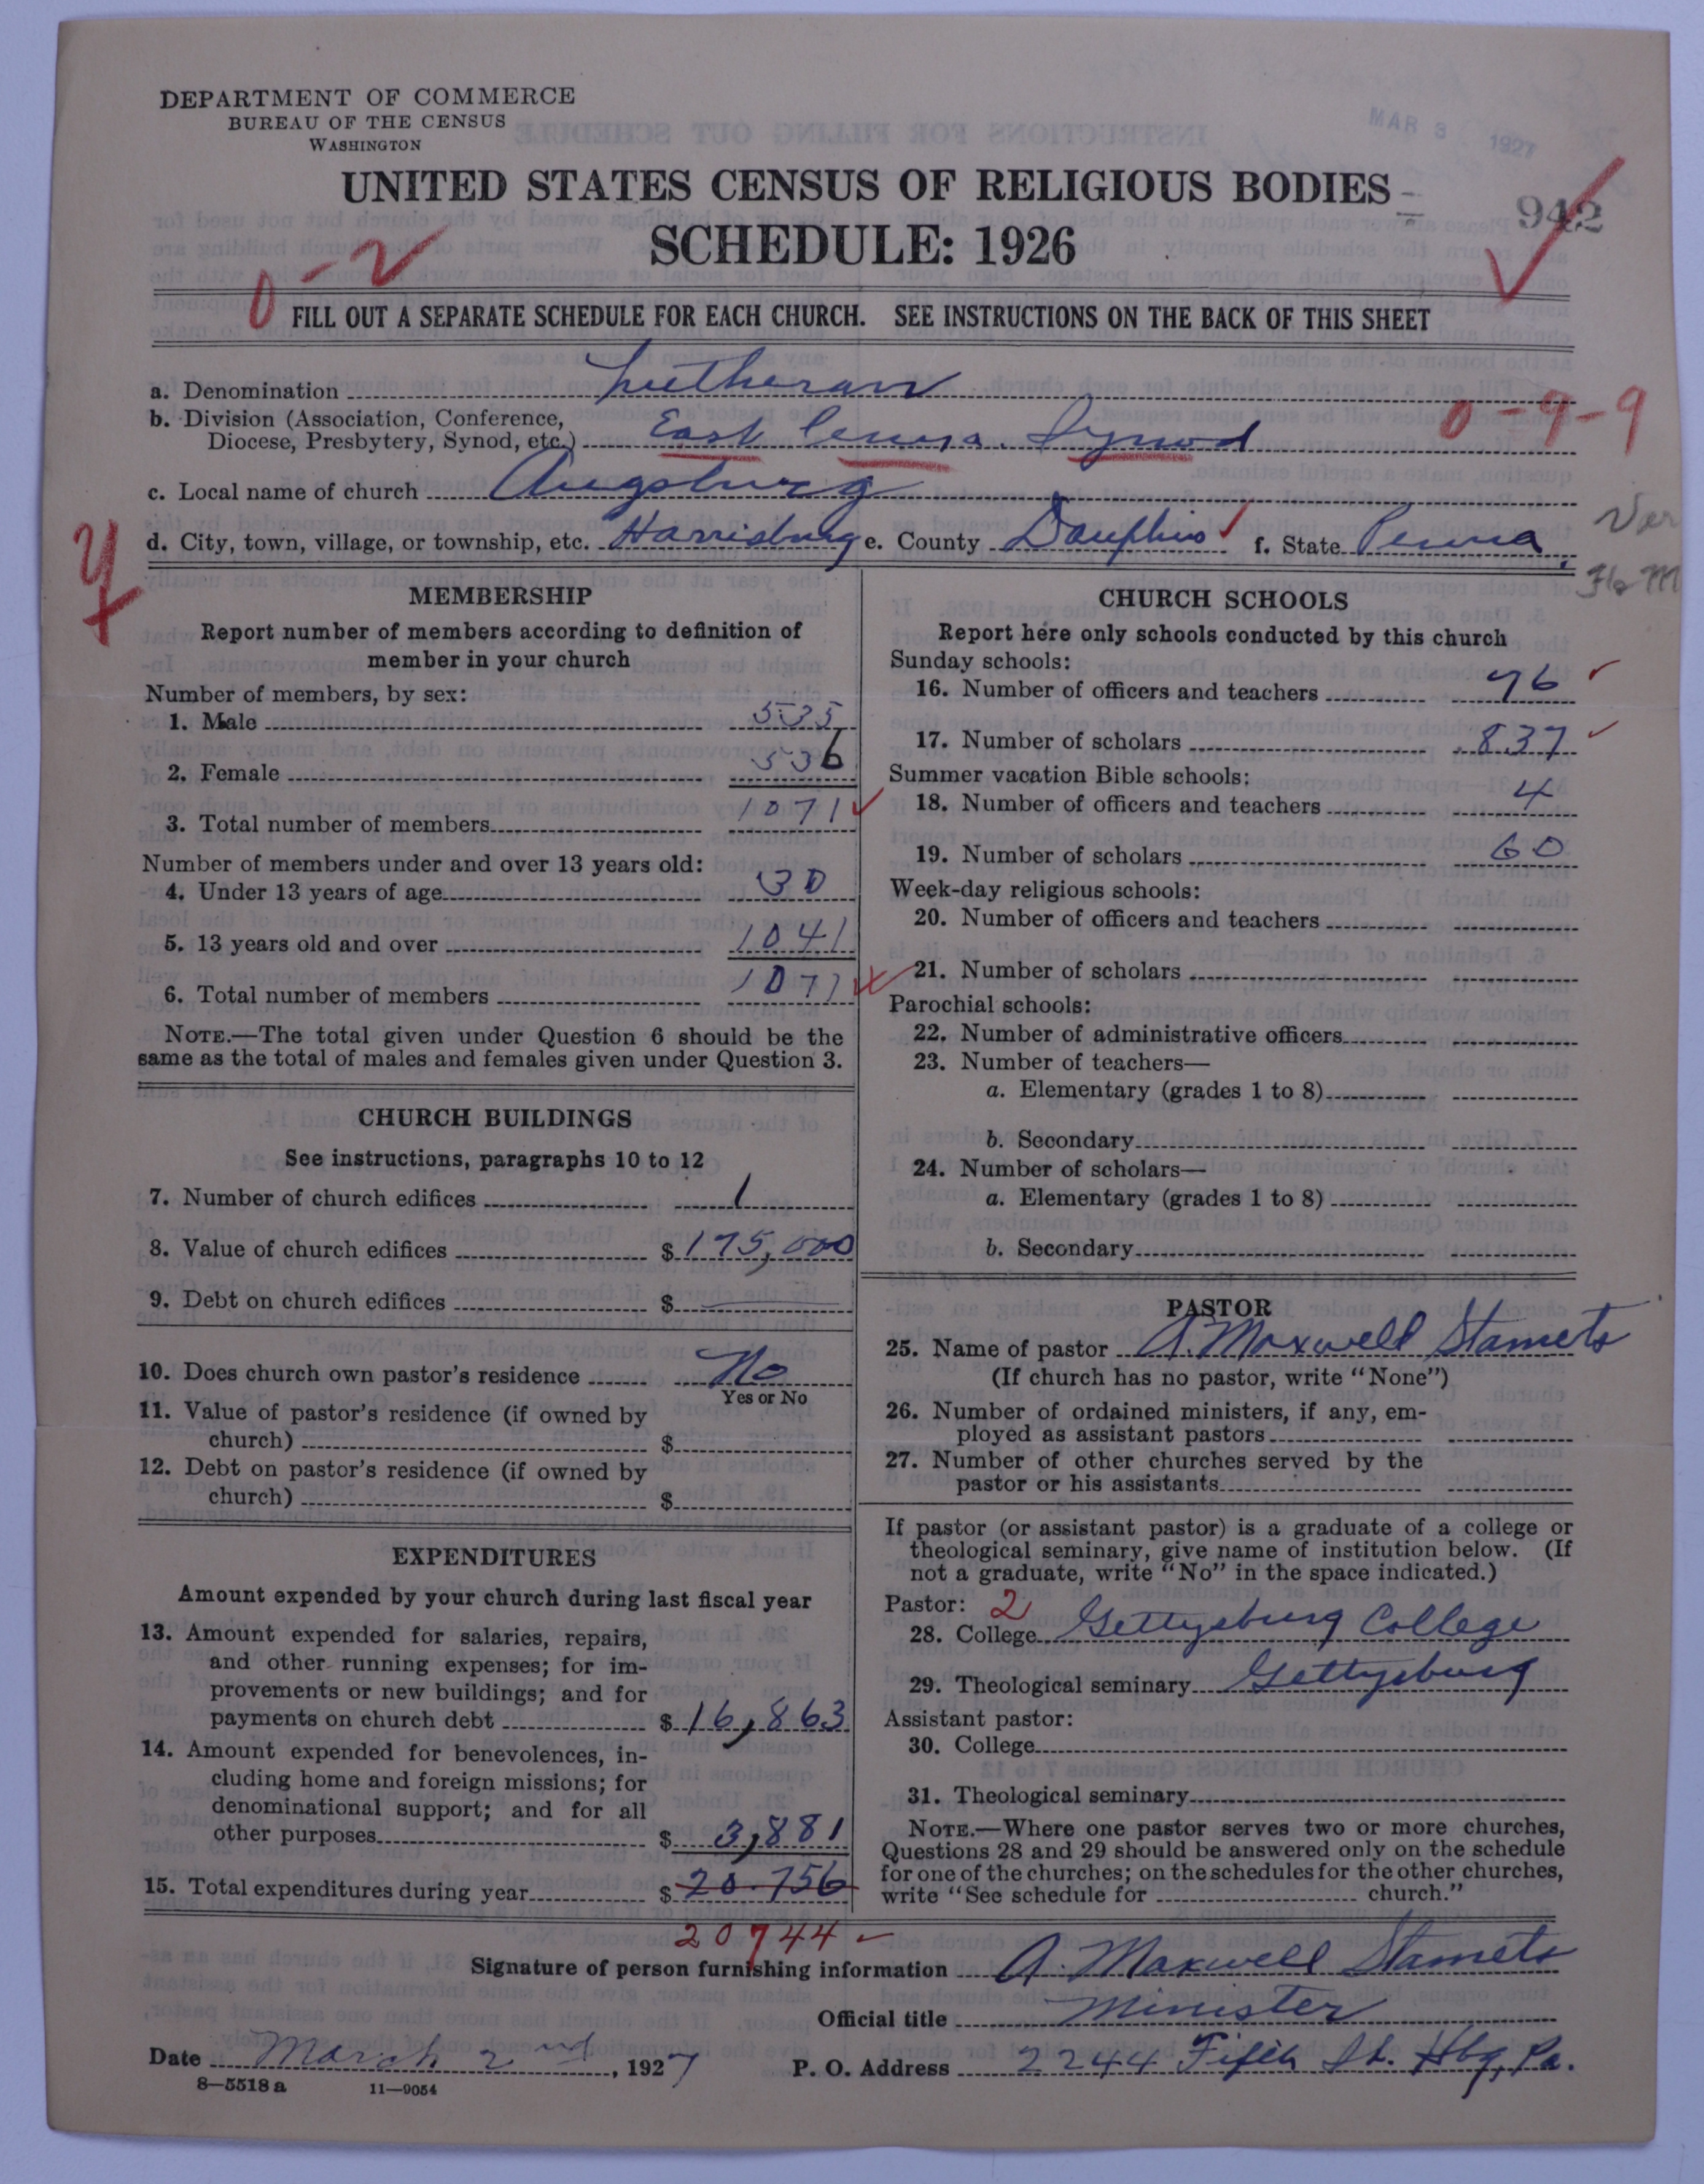 DEPARTMENT OF COMMERCE
BUREAU OF THE CENSUS
WASHINGTON
MAR 3 1927
UNITED STATES CENSUS OF RELIGIOUS BODIES
942
SCHEDULE: 1926
0-2
FILL OUT A SEPARATE SCHEDULE FOR EACH CHURCH. SEE INSTRUCTIONS ON THE BACK OF THIS SHEET
a. Denomination Lutheran
0-9-9
b. Division (Association, Conference,
Diocese, Presbytery, Synod, etc.) East Penna. Synod
c. Local name of church Augsburg
Ver
d. City, town, village, or township, etc. Harrisburg e. County Dauphin f. State Penna.
MEMBERSHIP
Report number of members according to definition of
member in your church
Number of members, by sex:
1. Male 535
2. Female 536
3. Total number of members 1071
Number of members under and over 13 years old:
4. Under 13 years of age 30
5. 13 years old and over 1041
6. Total number of members 1071
NOTE.—The total given under Question 6 should be the
same as the total of males and females given under Question 3.
CHURCH BUILDINGS
See instructions, paragraphs 10 to 12
7. Number of church edifices 1
8. Value of church edifices $ 175,000
9. Debt on church edifices $ —
10. Does church own pastor's residence No
Yes or No
11. Value of pastor's residence (if owned by
church) $
12. Debt on pastor's residence (if owned by
church) $
EXPENDITURES
Amount expended by your church during last fiscal year
13. Amount expended for salaries, repairs,
and other running expenses; for im-
provements or new buildings; and for
payments on church debt $ 16,863
14. Amount expended for benevolences, in-
cluding home and foreign missions; for
denominational support; and for all
other purposes $ 3,881
15. Total expenditures during year $ 20.756
20744
CHURCH SCHOOLS
Report here only schools conducted by this church
Sunday schools:
16. Number of officers and teachers 76
17. Number of scholars 837
Summer vacation Bible schools:
18. Number of officers and teachers 4
19. Number of scholars 60
Week-day religious schools:
20. Number of officers and teachers
21. Number of scholars
Parochial schools:
22. Number of administrative officers
23. Number of teachers—
a. Elementary (grades 1 to 8)
b. Secondary
24. Number of scholars—
a. Elementary (grades 1 to 8)
b. Secondary
PASTOR
25. Name of pastor A. Maxwell Stamets
(If church has no pastor, write "None")
26. Number of ordained ministers, if any, em-
ployed as assistant pastors
27. Number of other churches served by the
pastor or his assistants
If pastor (or assistant pastor) is a graduate of a college or
theological seminary, give name of institution below. (If
not a graduate, write "No" in the space indicated.)
Pastor: 2
28. College Gettysburg College
29. Theological seminary Gettysburg
Assistant pastor:
30. College
31. Theological seminary
NOTE.—Where one pastor serves two or more churches,
Questions 28 and 29 should be answered only on the schedule
for one of the churches; on the schedules for the other churches,
write "See schedule for church."
Signature of person furnishing information A. Maxwell Stamets
Official title Minister
Date March 2nd, 1927 P. O. Address 2244 Fifth St. Hbg, Pa.
8—5518 a 11—9054